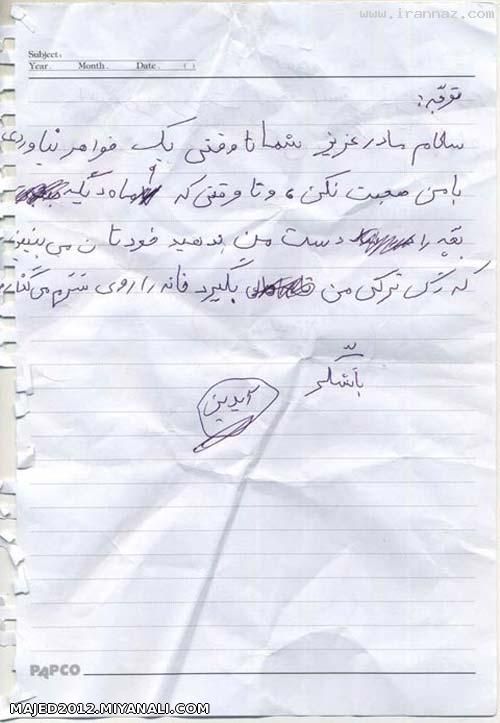 www.irannaz.com
Subject:
Year. Month. Date. ( )
توجه:
سلام مادر عزیز شما تا وقتی یک خواهر نیاوردی
با من صحبت نکن، و تا وقتی که ۹ ماه دیگه
بچه را دست من ندهید خودتان می بینید
که رگ ترکی من بگیرد خانه را روی سَرَم می گذارم
باتشکر
آیدین
PAPCO
MAJED2012.MIYANALI.COM